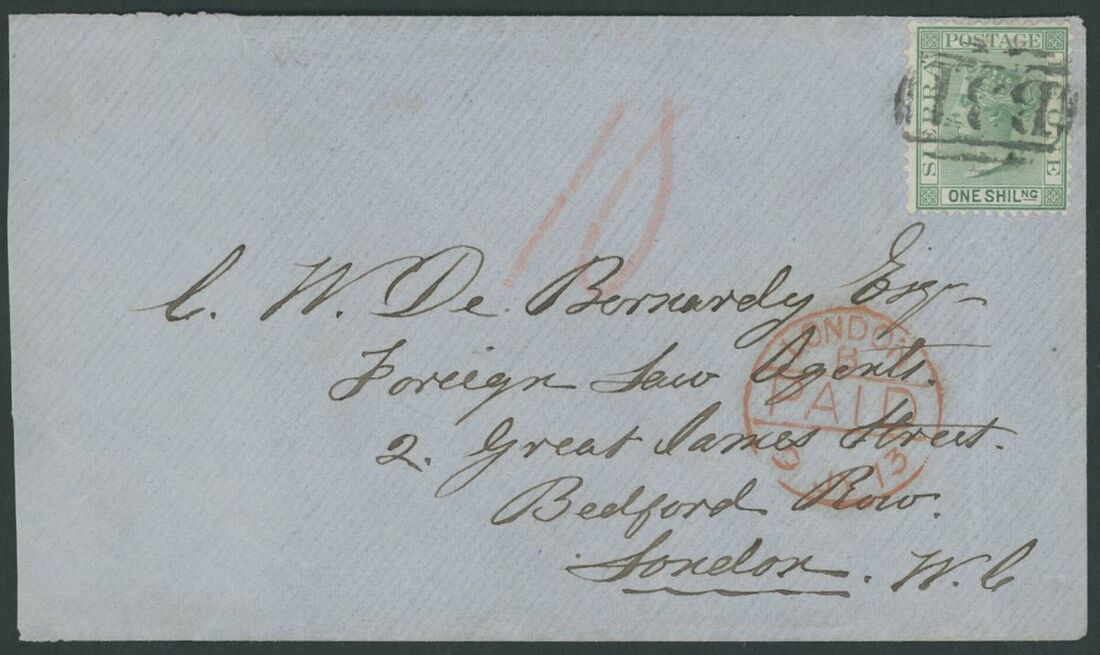 POSTAGE
SIERRA LEONE
ONE SHILNG
B31
10
C. W. De Bernardy Esqr
Foreign Law Agents.
2. Great James Street.
Bedford Row.
London. W.C
LONDON
B
PAID
JU 13